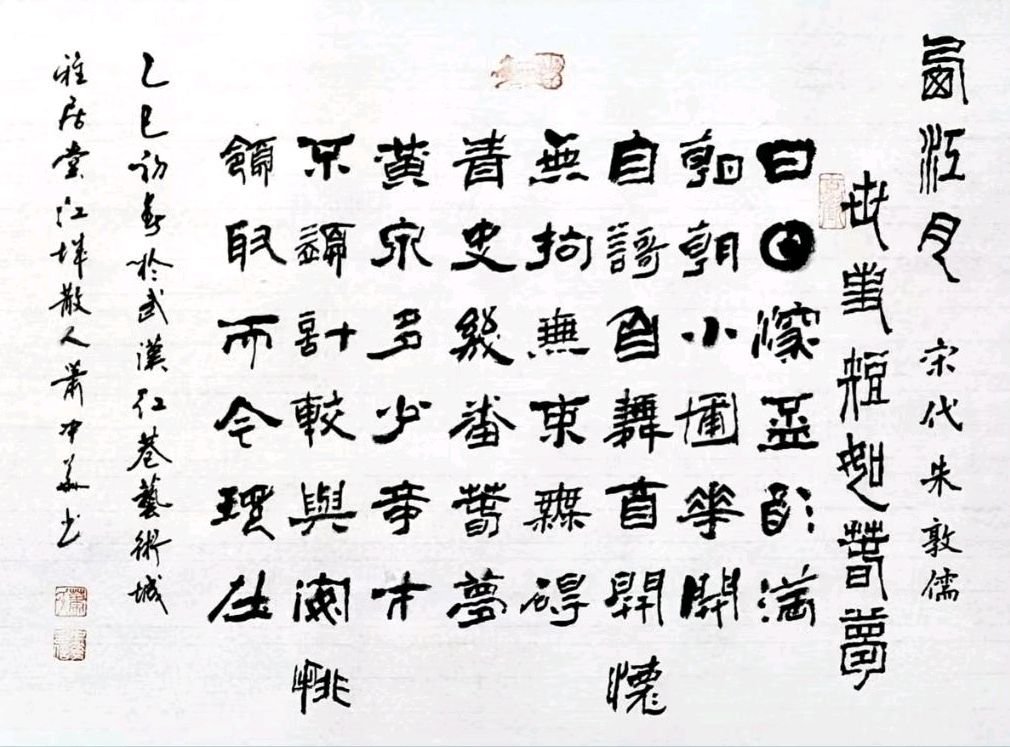 西江月 宋代 朱敦儒
世事短如春夢
日日深盃酒滿
朝朝小圃花開
自謌自舞自開懷
無拘無束無碍
青史幾番春夢
黄泉多少奇才
不須計較與安排
領取而今現在
乙巳初春於武漢红巷藝術城
雅居堂江城散人蕭冲书